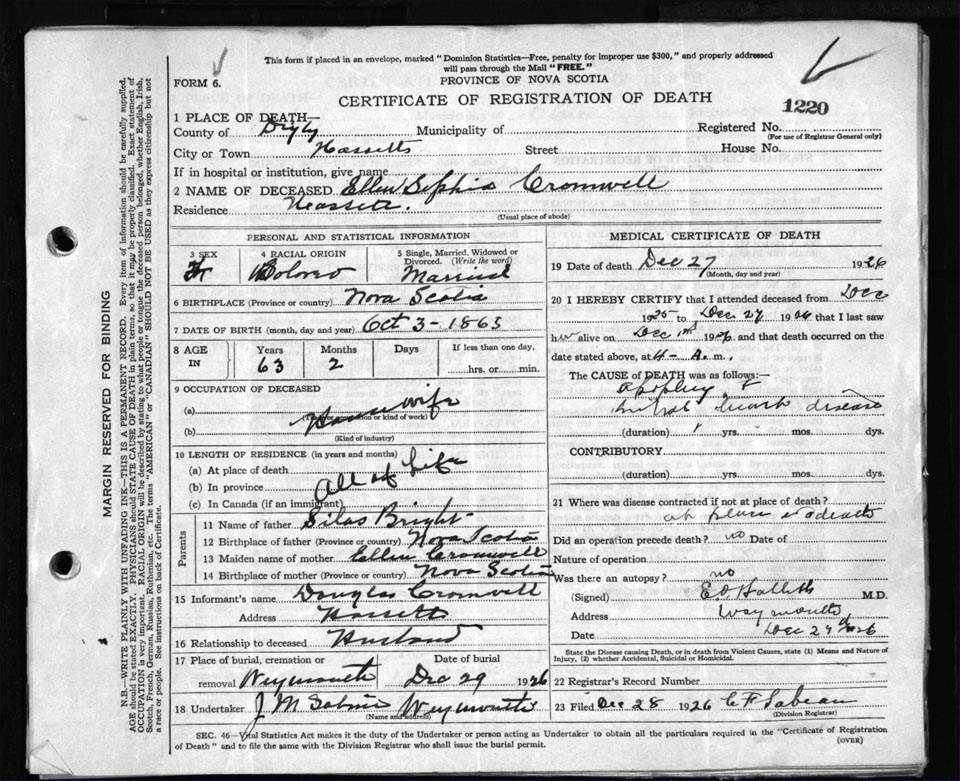 This form if placed in an envelope, marked "Dominion Statistics—Free, penalty for improper use $300," and properly addressed
will pass through the Mail "FREE."
FORM 6.
PROVINCE OF NOVA SCOTIA
CERTIFICATE OF REGISTRATION OF DEATH
1220
1 PLACE OF DEATH—
County of Digby Municipality of Registered No.
(For use of Registrar General only)
City or Town Hassetts Street House No.
If in hospital or institution, give name
2 NAME OF DECEASED Ellen Sophia Cromwell
Residence Hassetts.
(Usual place of abode)
PERSONAL AND STATISTICAL INFORMATION
3 SEX
4 RACIAL ORIGIN Colored
5 Single, Married, Widowed or
Divorced. (Write the word)
Married
6 BIRTHPLACE (Province or country) Nova Scotia
7 DATE OF BIRTH (month, day and year) Oct 3-1863
8 AGE IN Years Months Days If less than one day,
63 2 hrs. or min.
9 OCCUPATION OF DECEASED
(a) House wife
(Profession or kind of work)
(b)
(Kind of industry)
10 LENGTH OF RESIDENCE (in years and months)
(a) At place of death
(b) In province All of Life
(c) In Canada (if an immigrant)
Parents
11 Name of father Silas Bright
12 Birthplace of father (Province or country) Nova Scotia
13 Maiden name of mother Ellen Cromwell
14 Birthplace of mother (Province or country) Nova Scotia
15 Informant's name Douglas Cromwell
Address Hassetts
16 Relationship to deceased Husband
17 Place of burial, cremation or Date of burial
removal Weymouth Dec 29 1926
18 Undertaker J M Weymouth
(Name and address)
MEDICAL CERTIFICATE OF DEATH
19 Date of death Dec 27 1926
(Month, day and year)
20 I HEREBY CERTIFY that I attended deceased from Dec
1925 to Dec 27 1926 that I last saw
h alive on Dec 1926 and that death occurred on the
date stated above, at 4- A. m.
The CAUSE of DEATH was as follows:—
apoplexy
disease
(duration) yrs. mos. dys.
CONTRIBUTORY
(duration) yrs. mos. dys.
21 Where was disease contracted if not at place of death?
at place of death
Did an operation precede death? no Date of
Nature of operation
Was there an autopsy? no
(Signed) M.D.
Address Weymouth
Date Dec 27th 26
State the Disease causing Death, or in death from Violent Causes, state (1) Means and Nature of
Injury, (2) whether Accidental, Suicidal or Homicidal.
22 Registrar's Record Number
23 Filed Dec 28 1926 C F Sabean
(Division Registrar)
SEC. 46—Vital Statistics Act makes it the duty of the Undertaker or person acting as Undertaker to obtain all the particulars required in the "Certificate of Registration
of Death" and to file the same with the Division Registrar who shall issue the burial permit.
(OVER)
MARGIN RESERVED FOR BINDING
N.B.—WRITE PLAINLY WITH UNFADING INK—THIS IS A PERMANENT RECORD. Every item of information should be carefully supplied.
AGE should be stated EXACTLY. PHYSICIANS should STATE CAUSE OF DEATH in plain terms, so that it may be properly classified. Exact statement of
OCCUPATION is very important. RACIAL ORIGIN will be described by stating to what people or tongue the deceased person belonged, whether English, Irish,
Scotch, French, German, Russian, Ruthenian, etc. The terms "AMERICAN" or "CANADIAN" SHOULD NOT BE USED as they express citizenship but not
a race or people. See instructions on back of Certificate.